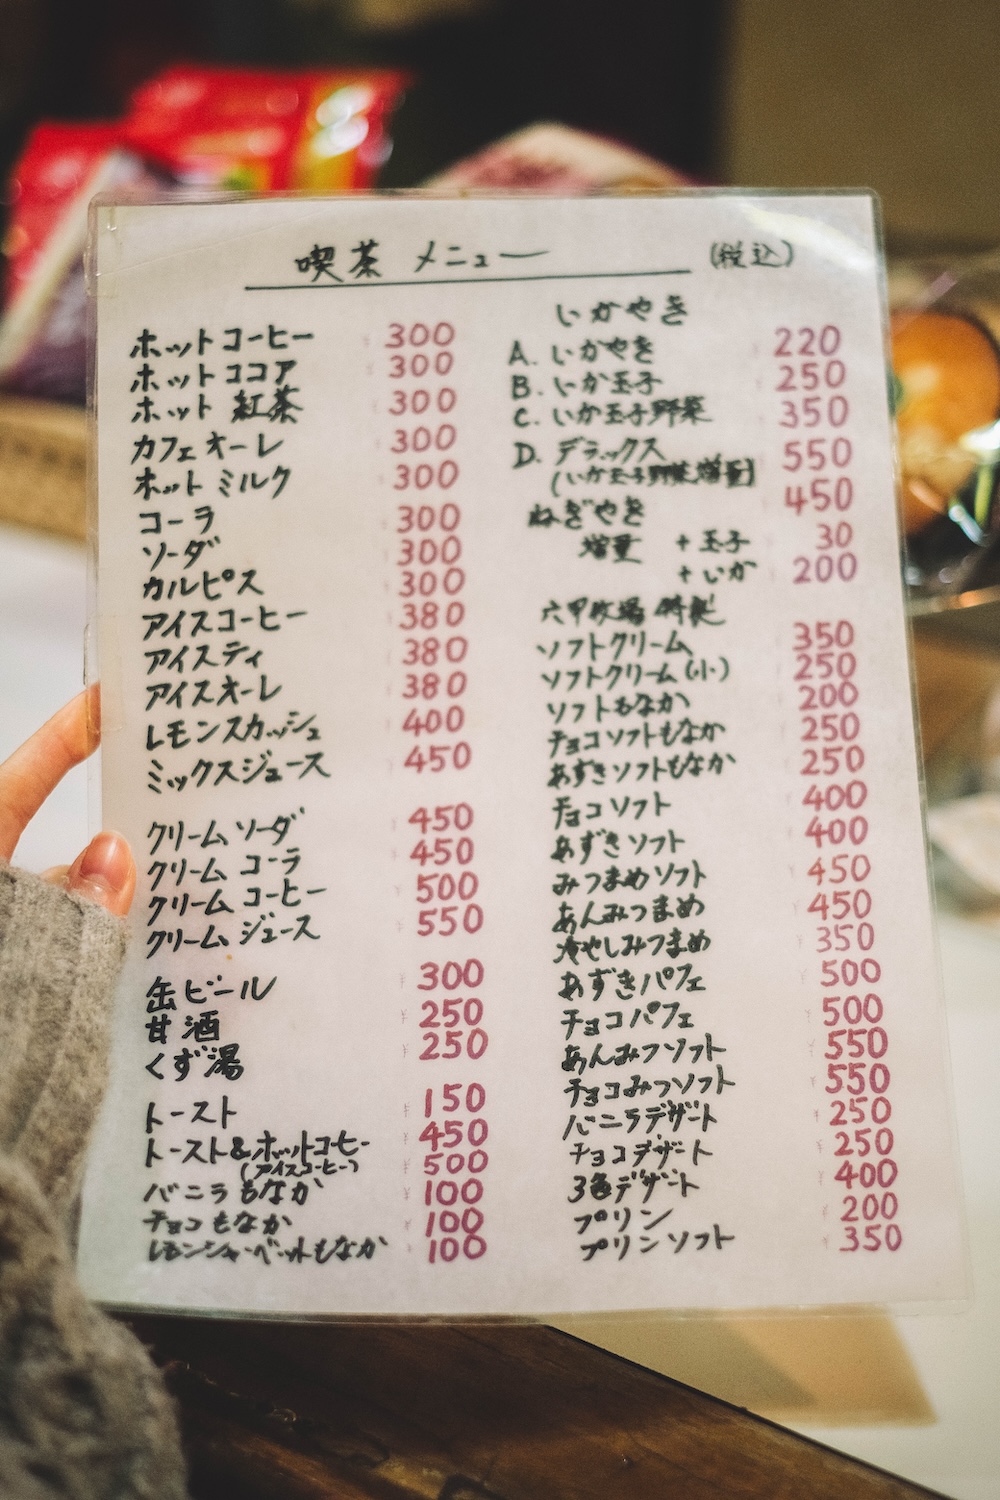 喫茶 メニュー (税込)
ホットコーヒー 300
ホットココア 300
ホット 紅茶 300
カフェオーレ 300
ホットミルク 300
コーラ 300
ソーダ 300
カルピス 300
アイスコーヒー 380
アイスティ 380
アイスオーレ 380
レモンスカッシュ 400
ミックスジュース 450
クリームソーダ 450
クリームコーラ 450
クリームコーヒー 500
クリームジュース 550
缶ビール 300
甘酒 250
くず湯 250
トースト 150
トースト&ホットコーヒー 450
(アイスコーヒー) 500
バニラもなか 100
チョコもなか 100
レモンシャーベットもなか 100
いかやき
A. いかやき 220
B. いか玉子 250
C. いか玉子野菜 350
D. デラックス 550
(いか玉子野菜増量)
ねぎやき 450
増量 +玉子 30
+いか 200
六甲牧場 特製
ソフトクリーム 350
ソフトクリーム(小) 250
ソフトもなか 200
チョコソフトもなか 250
あずきソフトもなか 250
チョコソフト 400
あずきソフト 400
みつまめソフト 450
あんみつまめ 450
冷やしみつまめ 350
あずきパフェ 500
チョコパフェ 500
あんみつソフト 550
チョコみつソフト 550
バニラデザート 250
チョコデザート 250
3色デザート 400
プリン 200
プリンソフト 350